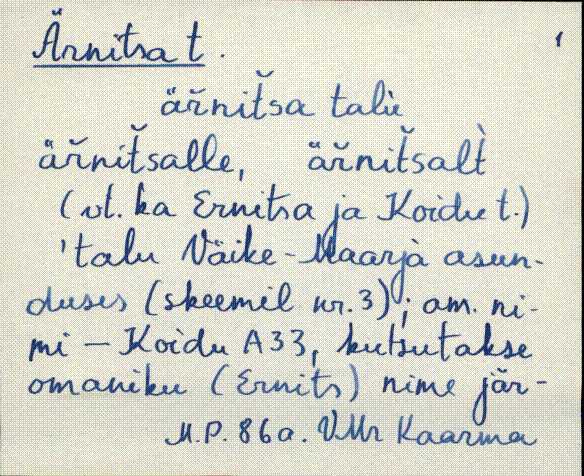 Ärnitsa t.
1
äŕnit̆sa talù
äŕnit̆salle, äŕnit̆salt̀
(vt. ka Ernitsa ja Koidu t.)
'talu Väike-Maarja asun-
duses (skeemil nr.3); am. ni-
mi — Koidu A33, kutsutakse
omaniku (Ernits) nime jär-
M.P. 86a. VMr Kaarma